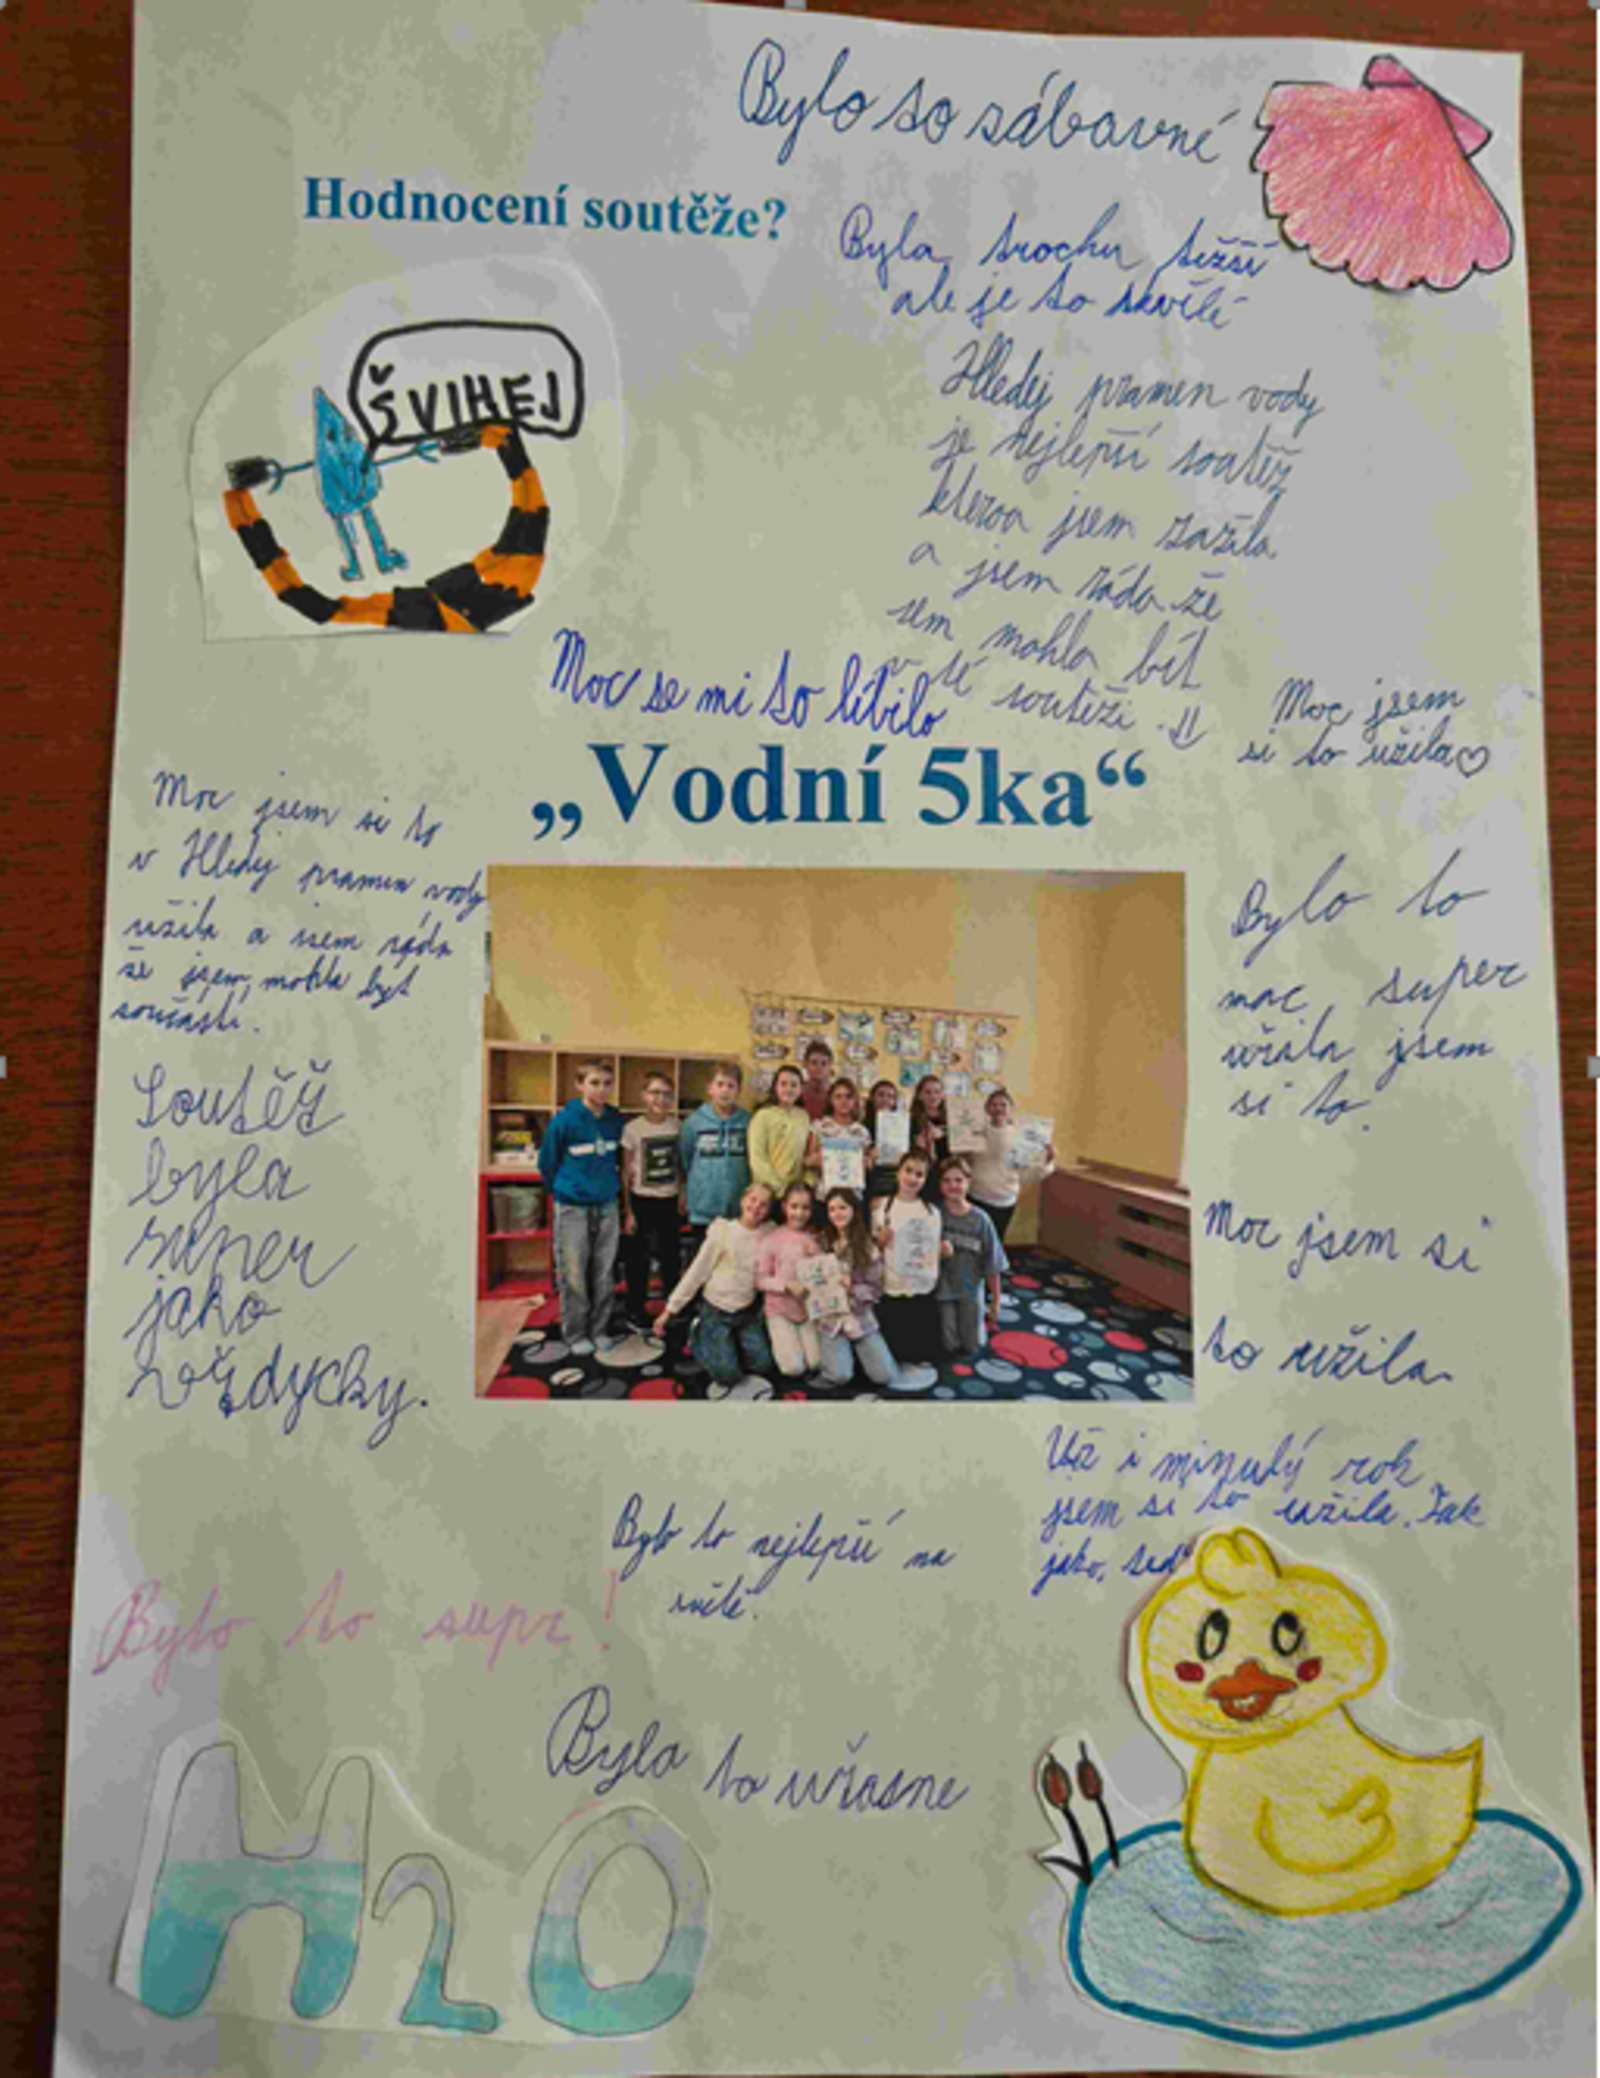 Bylo to zábavné
Hodnocení soutěže?
Byla trochu těžší
ale je to skvělé
ŠVIHEJ
Hledej pramen vody
je nejlepší soutěž
kterou jsem zažila
a jsem ráda že
sem mohla bít
v té soutěži :)
Moc se mi to líbilo
Moc jsem
si to užila♡
„Vodní 5ka“
Moc jsem si to
v Hledej pramen vody
užila a jsem ráda
že jsem mohla být
součástí.
Bylo to
moc super
užila jsem
si to.
Soutěž
byla
super
jako
vždycky.
Moc jsem si
to užila.
Už i minulý rok
jsem si to užila. Tak
jako, teď
Bylo to nejlepší na
světě.
Bylo to supr!
Bylo to užasne
H2O